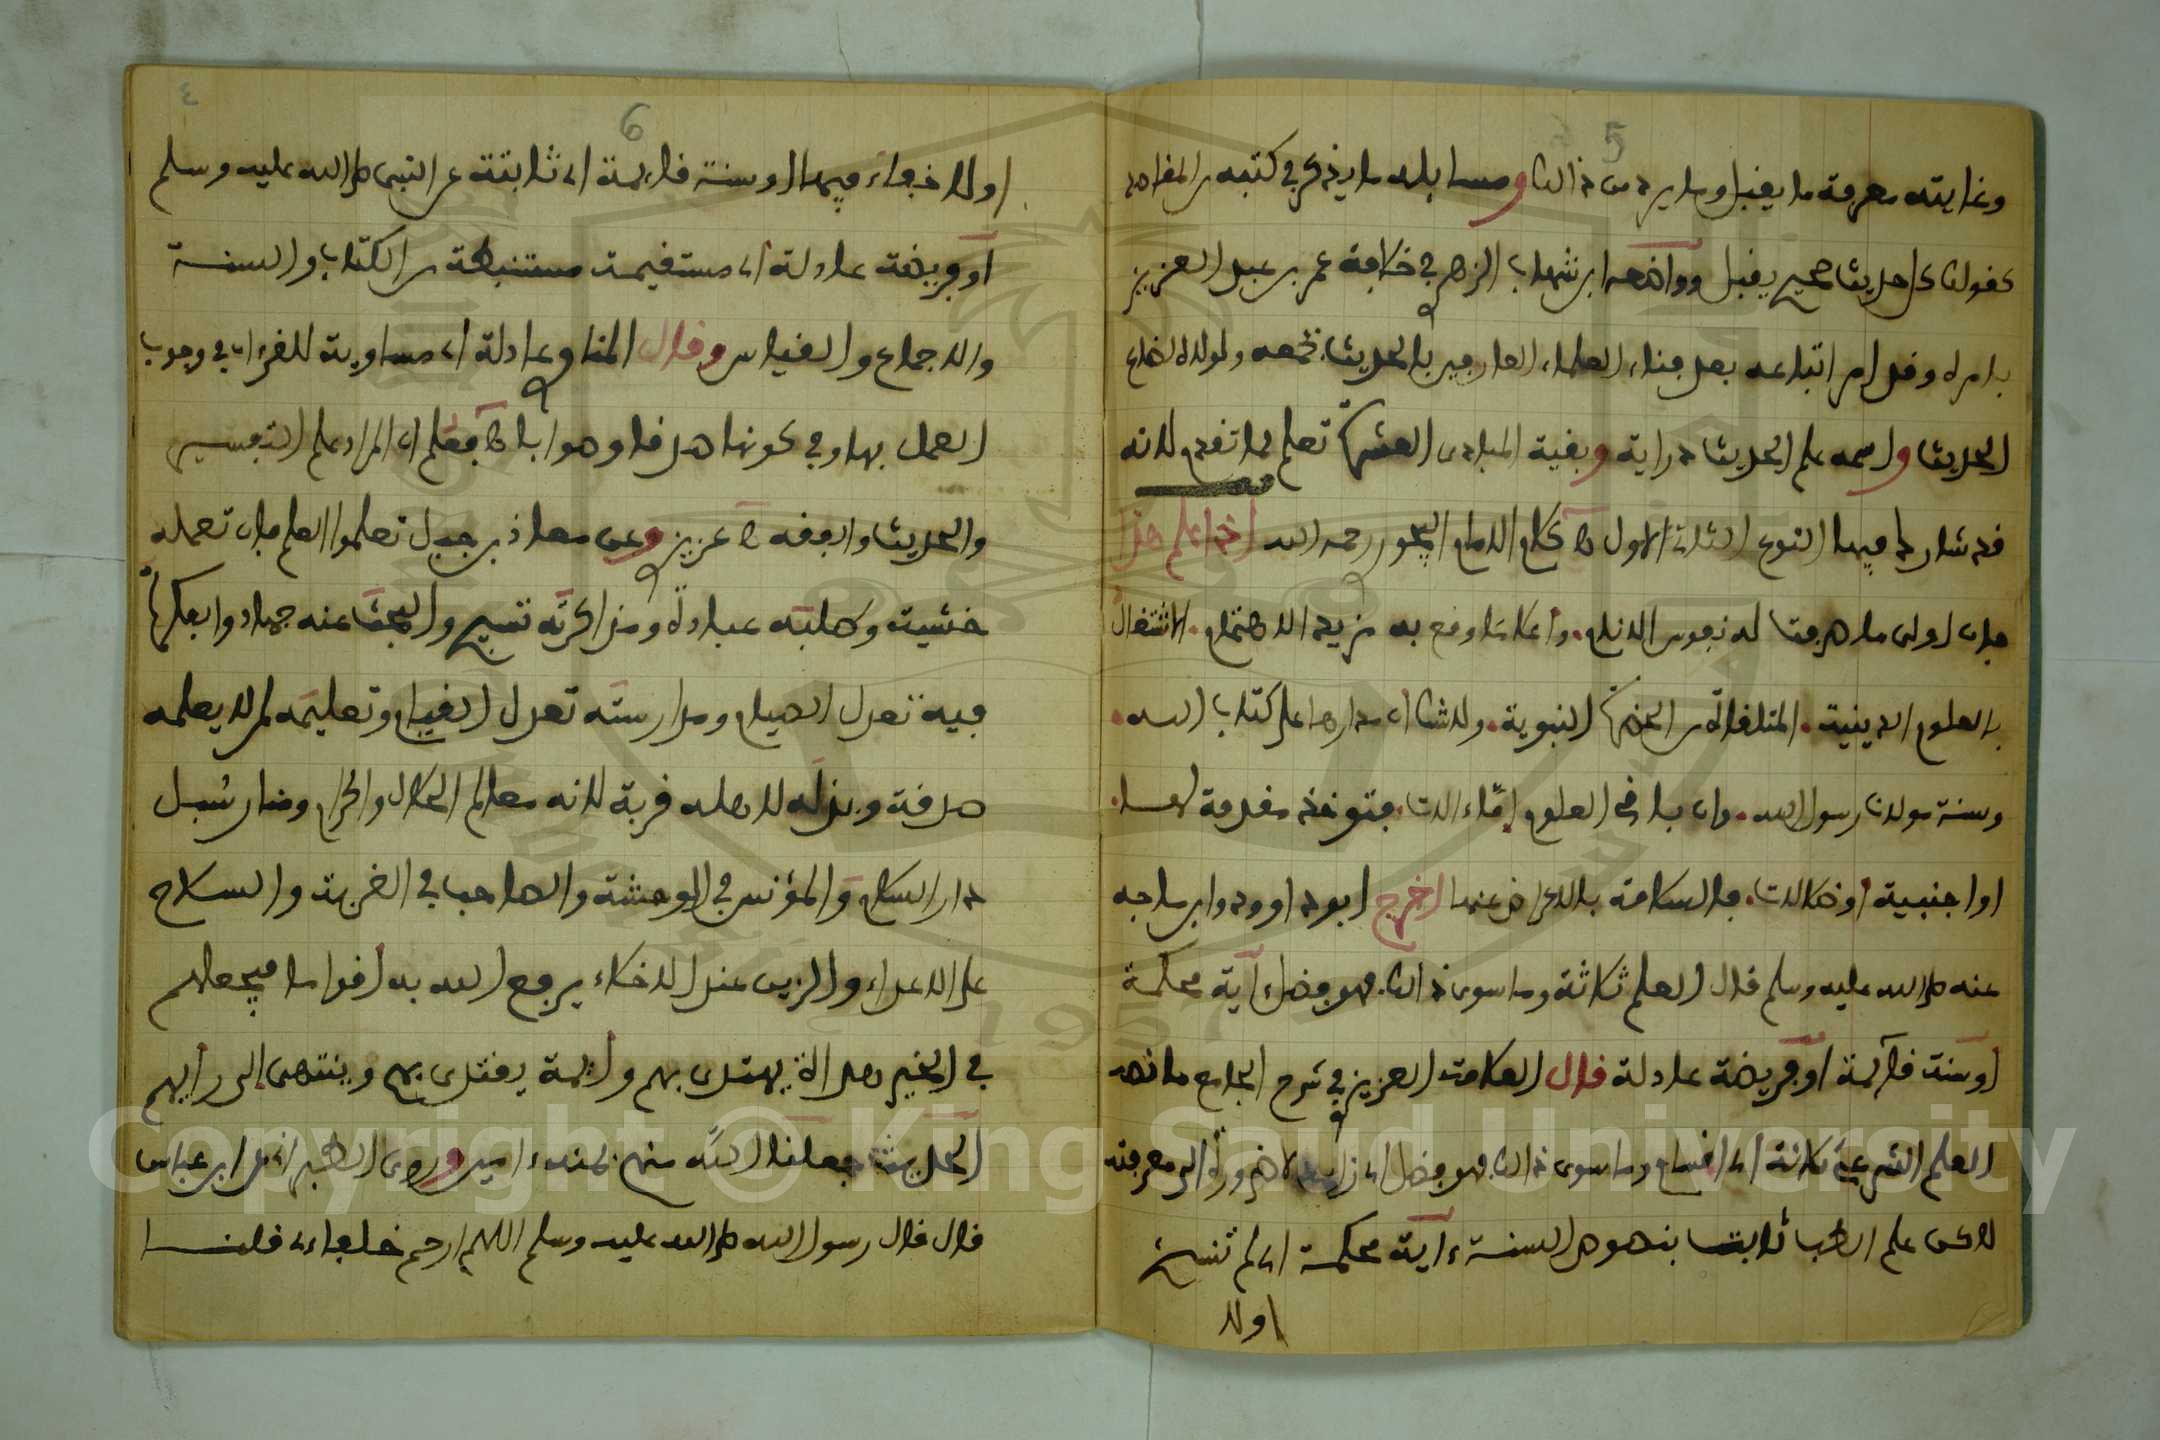 5
وغايته معرفة ما يقبل وما يرد من ذالك ومسايله ما يذكر في كتبه من المقاصد
كقولك كل حديث صحيح يقبل وواضعه ابن شهاب الزهري في خلافة عمر بن عبد العزيز
بامره وقد امر اتباعه بعد فناء العلماء العارفين بالحديث بجمعه ولولاه لضاع
الحديث واسمه علم الحديث دراية وبقية المبادي العشرة تعلم مما تقدم لانه
قد شارك فيها النوع الثاني الاول ه كلام الامام البيجوري رحمه الله اذا علم هذا
فان اولى ما صرفت له نفوس الانام. واعلا ما وقع به مزيد الاهتمام. الاشتغال
بالعلوم الدينية. المتلقاة من الحضرة النبوية. ولا شك ان مدارها على كتاب الله.
وسنة مولانا رسول الله. وان باقي العلوم إمّا ءالات. فتؤخذ مقدمة لهما.
او اجنبية او ضلالات. فالسلامة بالاعراض عنها اخرج ابو داوود وابن ماجه
عنه صلى الله عليه وسلم قال العلم ثلاثة وما سوى ذالك فهو فضل آية محكمة
او سنة قآئمة او فريضة عادلة قال العلامة العزيزي في شرح الجامع ما نصه
العلم الشرعي ثلاثة اي اقسام وما سوى ذالك فهو فضل اي زايد لا ضرورة الى معرفته
لاكن علم الطب ثابت بنصوص السنة ءاية محكمة اي لم تنسخ
اولا
٤
6
اولا خفاء فيها او سنة قايمة اي ثابتة عن النبي صلى الله عليه وسلم
او فريضة عادلة اي مستقيمة مستنبطة من الكتاب والسنة
والاجماع والقياس وقال المناوي عادلة اي مساوية للقرءان في وجوب
العمل بها وفي كونها صدقا وهوابا ه فعلم ان المراد علم التفسير
والحديث والفقه ه عزيزي وعن معاذ بن جبل تعلموا العلم فان تعلمه
خشية وطلبته عبادة ومذاكرته تسبيح والبحث عنه جهاد والفكرة
فيه تعدل الصيام ومدارسته تعدل القيام وتعليمه لمن لا يعلمه
صدقة وبذله لاهله قربة لانه معالم الحلال والحرام ومنار سبل
دار السلام والمؤنس في الوحشة والصاحب في الغربة والسلاح
على الاعداء والزين عند الاخلاء يرفع الله به اقواما فيجعلهم
في الخير هداة يهتدى بهم وأيمة يقتدى بهم وينتهى إلى رأيهم
الحديث جعلنا الله منهم بمنه ءامين وروى الطبراني عن ابن عباس
قال قال رسول الله صلى الله عليه وسلم اللهم ارحم خلفاءي قلنا
Copyright © King Saud University
1957